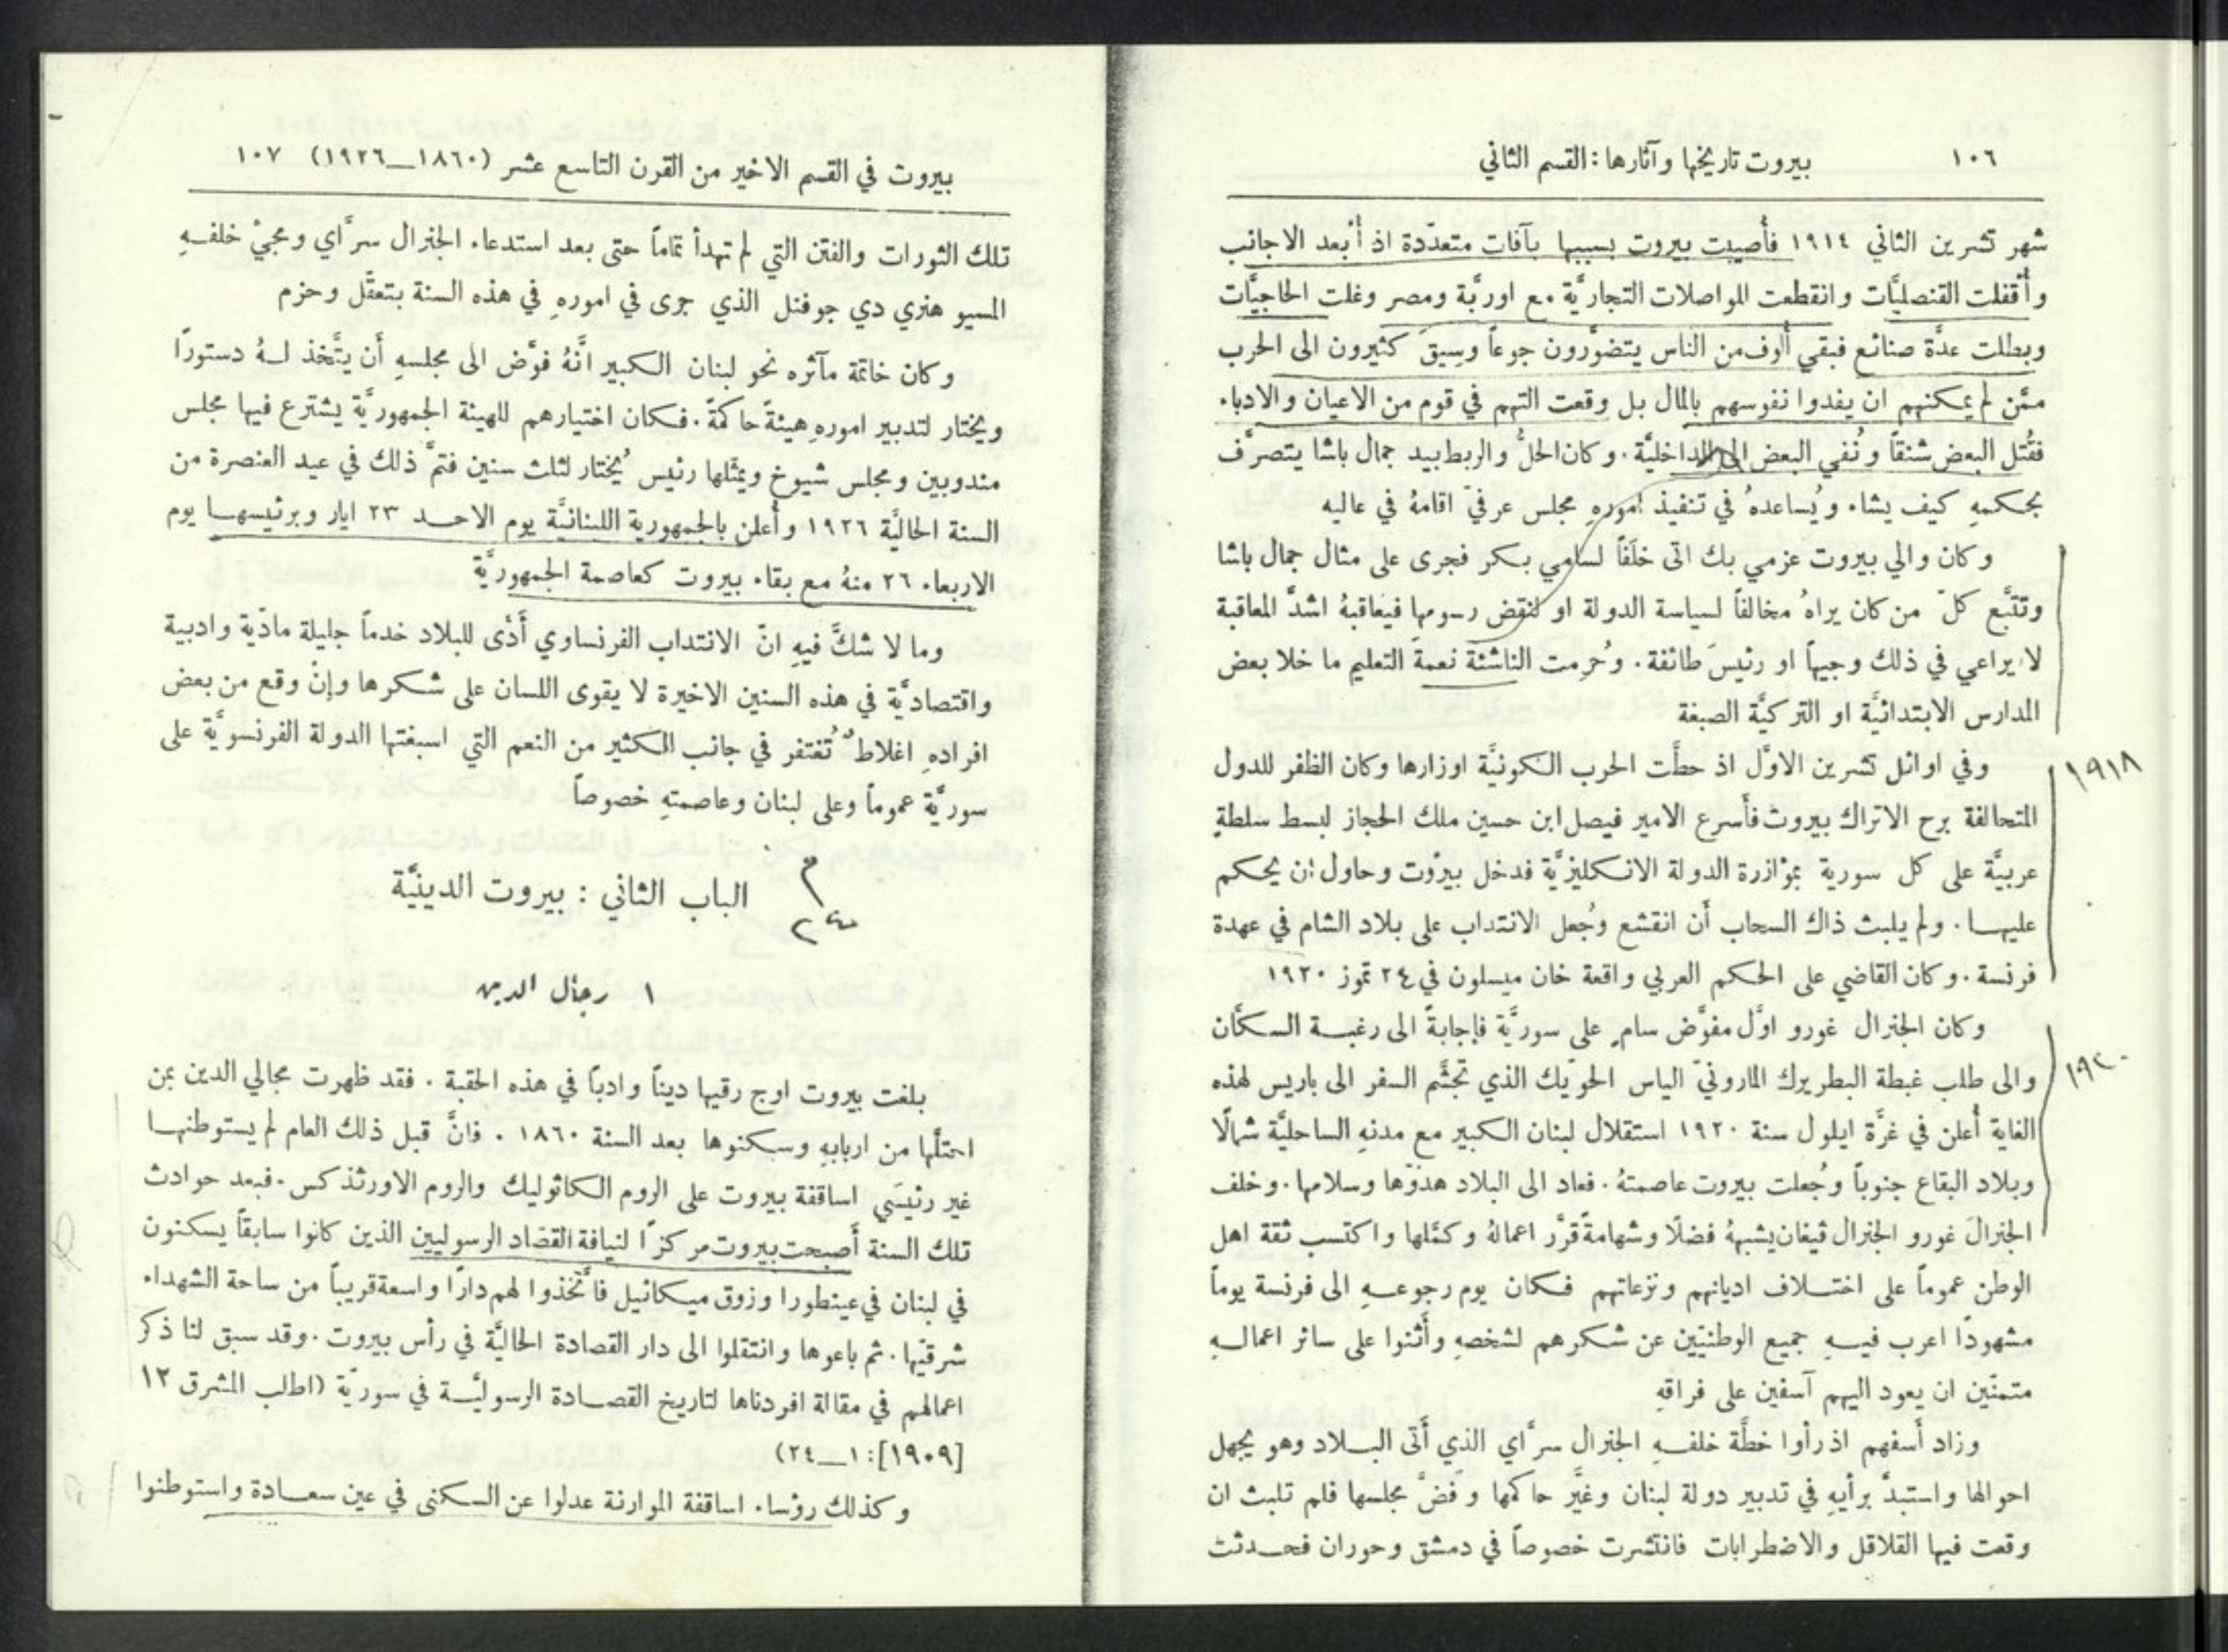 ١٠٦ بيروت تاريخها وآثارها: القسم الثاني
شهر تشرين الثاني ١٩١٤ فأُصيبت بيروت بسببها بآفات متعدّدة اذ أُبعد الاجانب
وأُقفلت القنصليَّات وانقطعت المواصلات التجاريَّة مع اوربَّة ومصر وغلت الحاجيَّات
وبطلت عدَّة صنائع فبقي أُلوف من الناس يتضوَّرون جوعاً وسِيقَ كثيرون الى الحرب
ممَّن لم يمكنهم ان يفدوا نفوسهم بالمال بل وقعت التهم في قوم من الاعيان والادباء
فقُتل البعض شنقاً ونُفي البعض الى الداخليَّة. وكان الحلُّ والربط بيد جمال باشا يتصرَّف
بحكمهِ كيف يشاء ويُساعدهُ في تنفيذ امورهِ مجلس عرفيّ اقامهُ في عاليه
وكان والي بيروت عزمي بك اتى خلَفاً لسامي بكر فجرى على مثال جمال باشا
وتتبَّع كلّ من كان يراهُ مخالفاً لسياسة الدولة او لنقض رسومها فيعاقبهُ اشدَّ المعاقبة
لا يراعي في ذلك وجيهاً او رئيسَ طائفة. وحُرمت الناشئة نعمةَ التعليم ما خلا بعض
المدارس الابتدائيَّة او التركيَّة الصبغة
وفي اوائل تشرين الاوَّل اذ حطَّت الحرب الكونيَّة اوزارها وكان الظفر للدول
١٩١٨
المتحالفة برح الاتراك بيروت فأَسرع الامير فيصل ابن حسين ملك الحجاز لبسط سلطةٍ
عربيَّة على كل سورية بمؤازرة الدولة الانكليزيَّة فدخل بيرُوت وحاول ان يحكم
عليهـا. ولم يلبث ذاك السحاب أَن انقشع وجُعل الانتداب على بلاد الشام في عهدة
فرنسة. وكان القاضي على الحكم العربي واقعة خان ميسلون في ٢٤ تموز ١٩٢٠
وكان الجنرال غورو اوَّل مفوَّض سامٍ على سوريَّة فإِجابةً الى رغبـة السكَّان
والى طلب غبطة البطريرك المارونيّ الياس الحوَيّك الذي تجشَّم السفر الى باريس لهذه
١٩٢٠
الغاية أُعلن في غرَّة ايلول سنة ١٩٢٠ استقلال لبنان الكبير مع مدنهِ الساحليَّة شمالًا
وبلاد البقاع جنوباً وجُعلت بيروت عاصمتهُ. فعاد الى البلاد هدوّها وسلامها. وخلف
الجنرالَ غورو الجنرال ڤيغان يشبههُ فضلًا وشهامةً فقرَّر اعمالهُ وكمَّلها واكتسب ثقة اهل
الوطن عموماً على اختـلاف اديانهم ونزعاتهم فكان يوم رجوعـهِ الى فرنسة يوماً
مشهودًا اعرب فيـهِ جميع الوطنيّين عن شكرهم لشخصهِ وأَثنوا على سائر اعمالـهِ
متمنّين ان يعود اليهم آسفين على فراقهِ
وزاد أَسفهم اذ رأوا خطَّة خلفـهِ الجنرال سرَّاي الذي أَتى البـلاد وهو يجهل
احوالها واستبدَّ برأيهِ في تدبير دولة لبنان وغيَّر حاكمها وفضَّ مجلسها فلم تلبث ان
وقعت فيها القلاقل والاضطرابات فانتشرت خصوصاً في دمشق وحوران فحـدثت
بيروت في القسم الاخير من القرن التاسع عشر (١٨٦٠—١٩٢٦) ١٠٧
تلك الثورات والفتن التي لم تهدأ تماماً حتى بعد استدعاء الجنرال سرَّاي ومجيْ خلفـهِ
المسيو هنري دي جوفنل الذي جرى في امورهِ في هذه السنة بتعقُّل وحزم
وكان خاتمة مآثره نحو لبنان الكبير انَّهُ فوَّض الى مجلسهِ أَن يتَّخذ لـهُ دستورًا
ويختار لتدبير امورهِ هيئةً حاكمةً. فكان اختيارهم للهيئة الجمهوريَّة يشترع فيها مجلس
مندوبين ومجلس شيوخ ويمثّلها رئيس يُختار لثلث سنين فتمَّ ذلك في عيد العنصرة من
السنة الحاليَّة ١٩٢٦ وأُعلن بالجمهورية اللبنانيَّة يوم الاحـد ٢٣ ايار وبرئيسهـا يوم
الاربعاء ٢٦ منهُ مع بقاء بيروت كعاصمة الجمهوريَّة
وما لا شكَّ فيهِ انّ الانتداب الفرنساوي أَدَّى للبلاد خدماً جليلة مادّية وادبية
واقتصاديَّة في هذه السنين الاخيرة لا يقوى اللسان على شكرها وإِنْ وقع من بعض
افرادهِ اغلاطٌ تُغتفر في جانب الكثير من النعم التي اسبغتها الدولة الفرنسويَّة على
سوريَّة عموماً وعلى لبنان وعاصمتهِ خصوصاً
الباب الثاني : بيروت الدينيَّة
١ رجال الدين
بلغت بيروت اوج رقيها ديناً وادباً في هذه الحقبة. فقد ظهرت مجالي الدين بمن
احتلَّها من اربابهِ وسكنوها بعد السنة ١٨٦٠. فانَّ قبل ذلك العام لم يستوطنهـا
غير رئيسَي اساقفة بيروت على الروم الكاثوليك والروم الاورثذكس. فبعد حوادث
تلك السنة أَصبحت بيروت مركزًا لنيافة القصَّاد الرسوليين الذين كانوا سابقاً يسكنون
في لبنان في عينطورا وزوق ميكائيل فاتَّخذوا لهم دارًا واسعة قريباً من ساحة الشهداء
شرقيّها. ثم باعوها وانتقلوا الى دار القصادة الحاليَّة في رأس بيروت. وقد سبق لنا ذكر
اعمالهم في مقالة افردناها لتاريخ القصـادة الرسوليَّـة في سوريَّة (اطلب المشرق ١٢
[١٩٠٩]: ١—٢٤)
وكذلك رؤساء اساقفة الموارنة عدلوا عن السكنى في عين سعـادة واستوطنوا